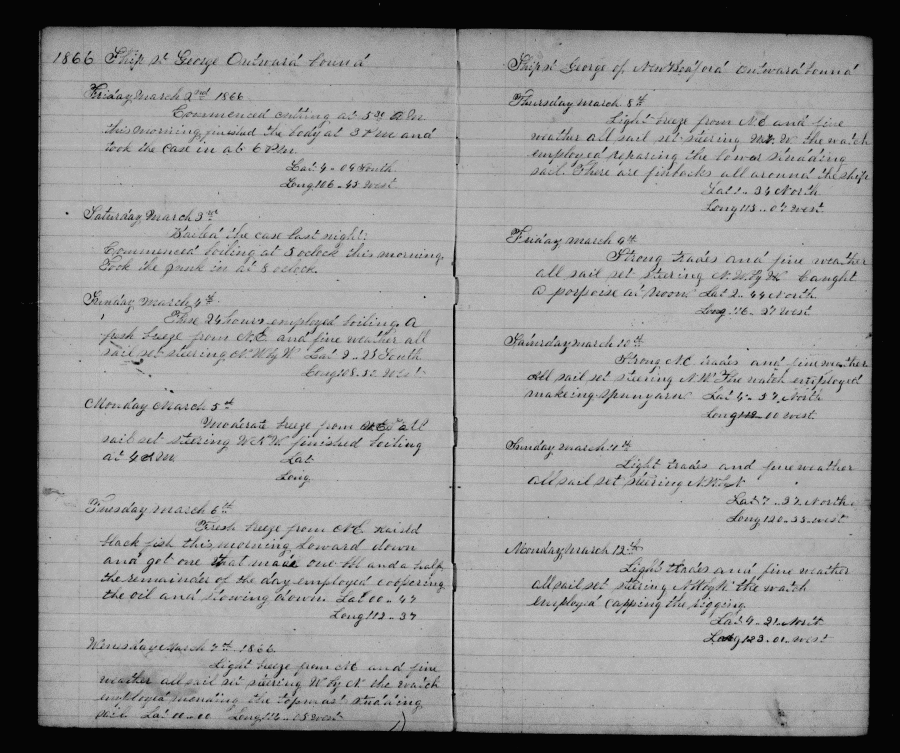 1866 Ship St George Outward bound
Friday March 2nd 1866
Commenced cutting at 5 AM
this morning finished the body at 3 PM and
took the case in at 6 PM
Lat 4 .. 04 North
Long 106 .. 45 West
Saturday March 3rd
Bailed the case last night.
Commenced boiling at 5 oclock this morning.
Took the junk in at 8 oclock.
Sunday March 4th
These 24 hours employed boiling A
fresh breeze from N.E. and fine weather all
sail set steering N.W by W Lat 2 .. 28 South
Long 108 .. 52 West
Monday March 5th
Moderate breeze from all
sail set steering W.N.W. finished boiling
at 4 AM. Lat
Long
Tuesday March 6th
Fresh breeze from N.E raised
black fish this morning lowered down
and got one that made one bbl and a half
the remainder of the day employed coopering
the oil and stowing down Lat 00 .. 47
Long 112 .. 37
Wensday March 7th 1866
Light breeze from N.E and fine
weather all sail set steering W by N the watch
employed mending the topmast studding
sail Lat 00 .. 00 Long 116 .. 08 West
Ship St George of New Bedford Outward bound
Thursday March 8th
Light breeze from N.E and fine
weather all sail set steering the watch
employed repairing the lower studding
sail There are finbacks all around the ship
Lat 1 .. 34 North
Long 113 .. 07 West
Friday March 9th
Strong trades and fine weather
all sail set steering N.W. by W Caught
a porpoise at noon Lat 2 .. 44 North
Long 116 .. 27 West
Saturday March 10th
Strong N.E trades and fine weather
all sail set steering N.W The watch employed
making spunyarn Lat 4 .. 37 North
Long 118 .. 00 West
Sunday March 11th
Light trades and fine weather
all sail set steering
Lat 7 .. 37 North
Long 120 .. 33 West
Monday March 12th
Light trades and fine weather
all sail set steering N.W by N the watch
employed capping the rigging
Lat 4 .. 21 North
Long 123 .. 01 West